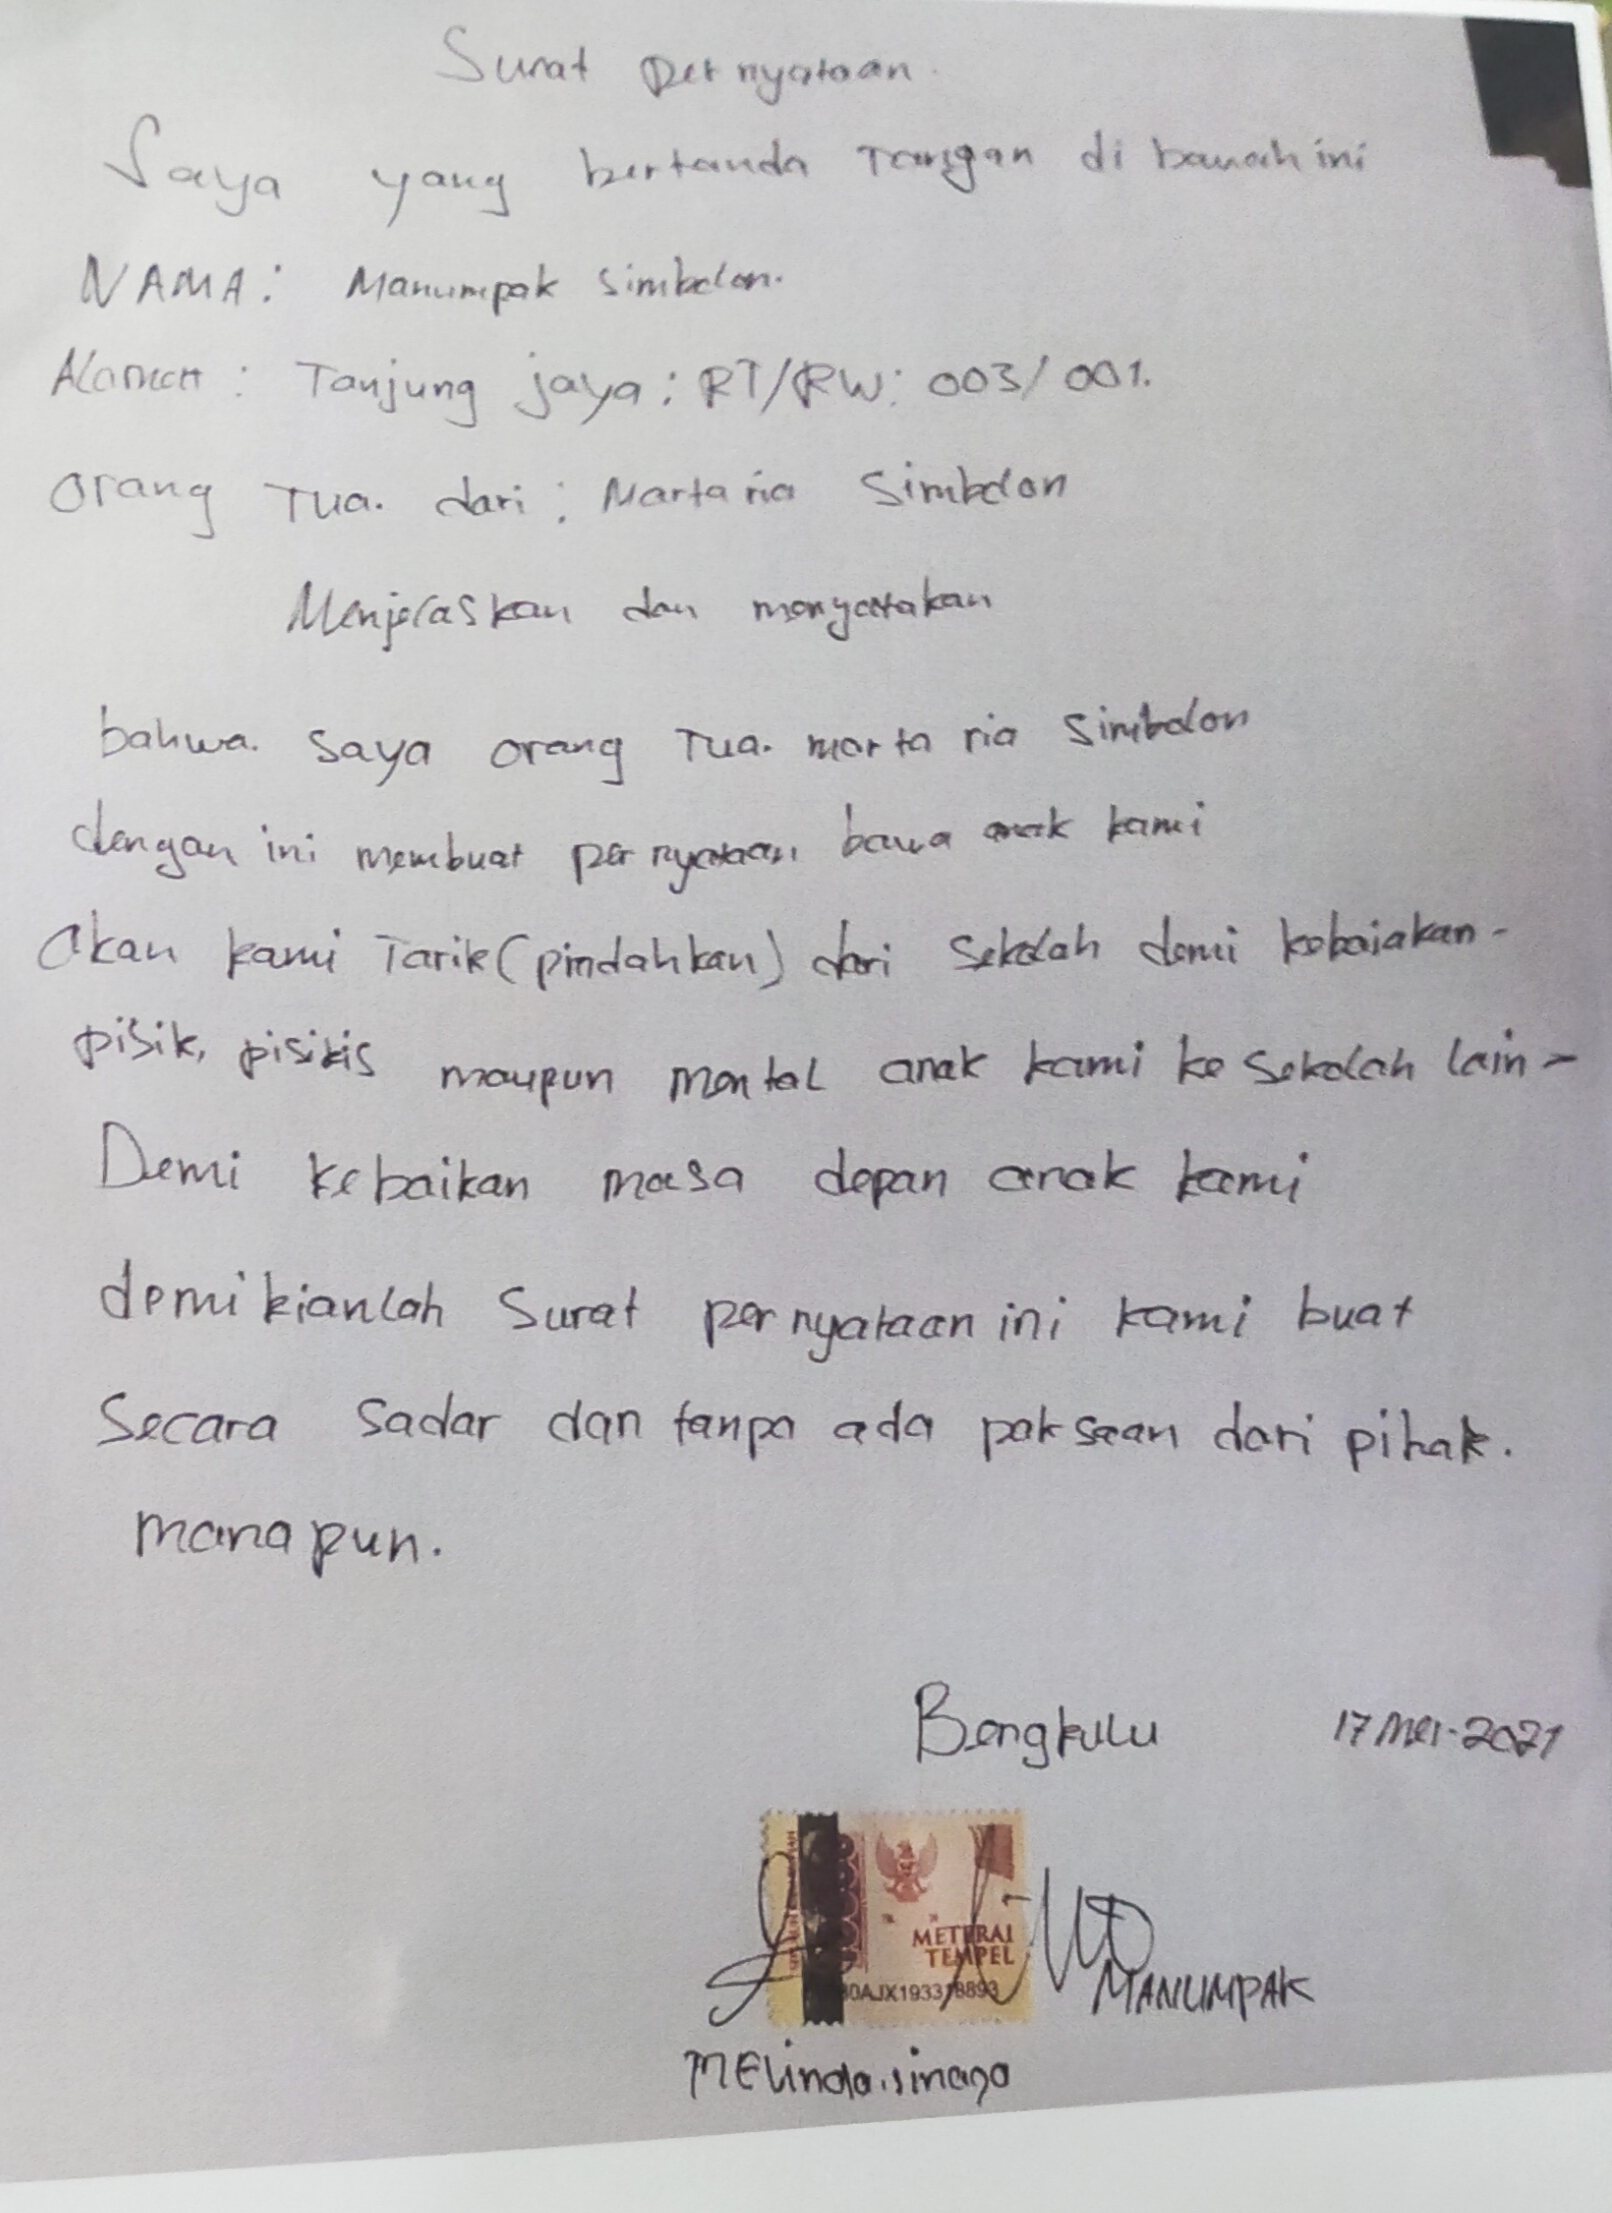 Surat pernyataan.
Saya yang bertanda Tangan di bawah ini
NAMA: Manumpak Simbolon.
Alamat: Tanjung jaya: RT/RW: 003/001.
Orang Tua. dari: Marta ria Simbolon
Menjelaskan dan menyatakan
bahwa. saya orang Tua. marta ria Simbolon
dengan ini membuat pernyataan bawa anak kami
Akan kami Tarik (pindahkan) dari Sekolah demi kebaiakan-
pisik, pisikis maupun mental anak kami ke Sekolah lain-
Demi kebaikan masa depan anak kami
demikianlah Surat pernyataan ini kami buat
Secara sadar dan tanpa ada paksaan dari pihak.
manapun.
Bengkulu 17 Mei-2021
METERAI
TEMPEL
0AJX193318893
MANUMPAK
MElinda.sinaga